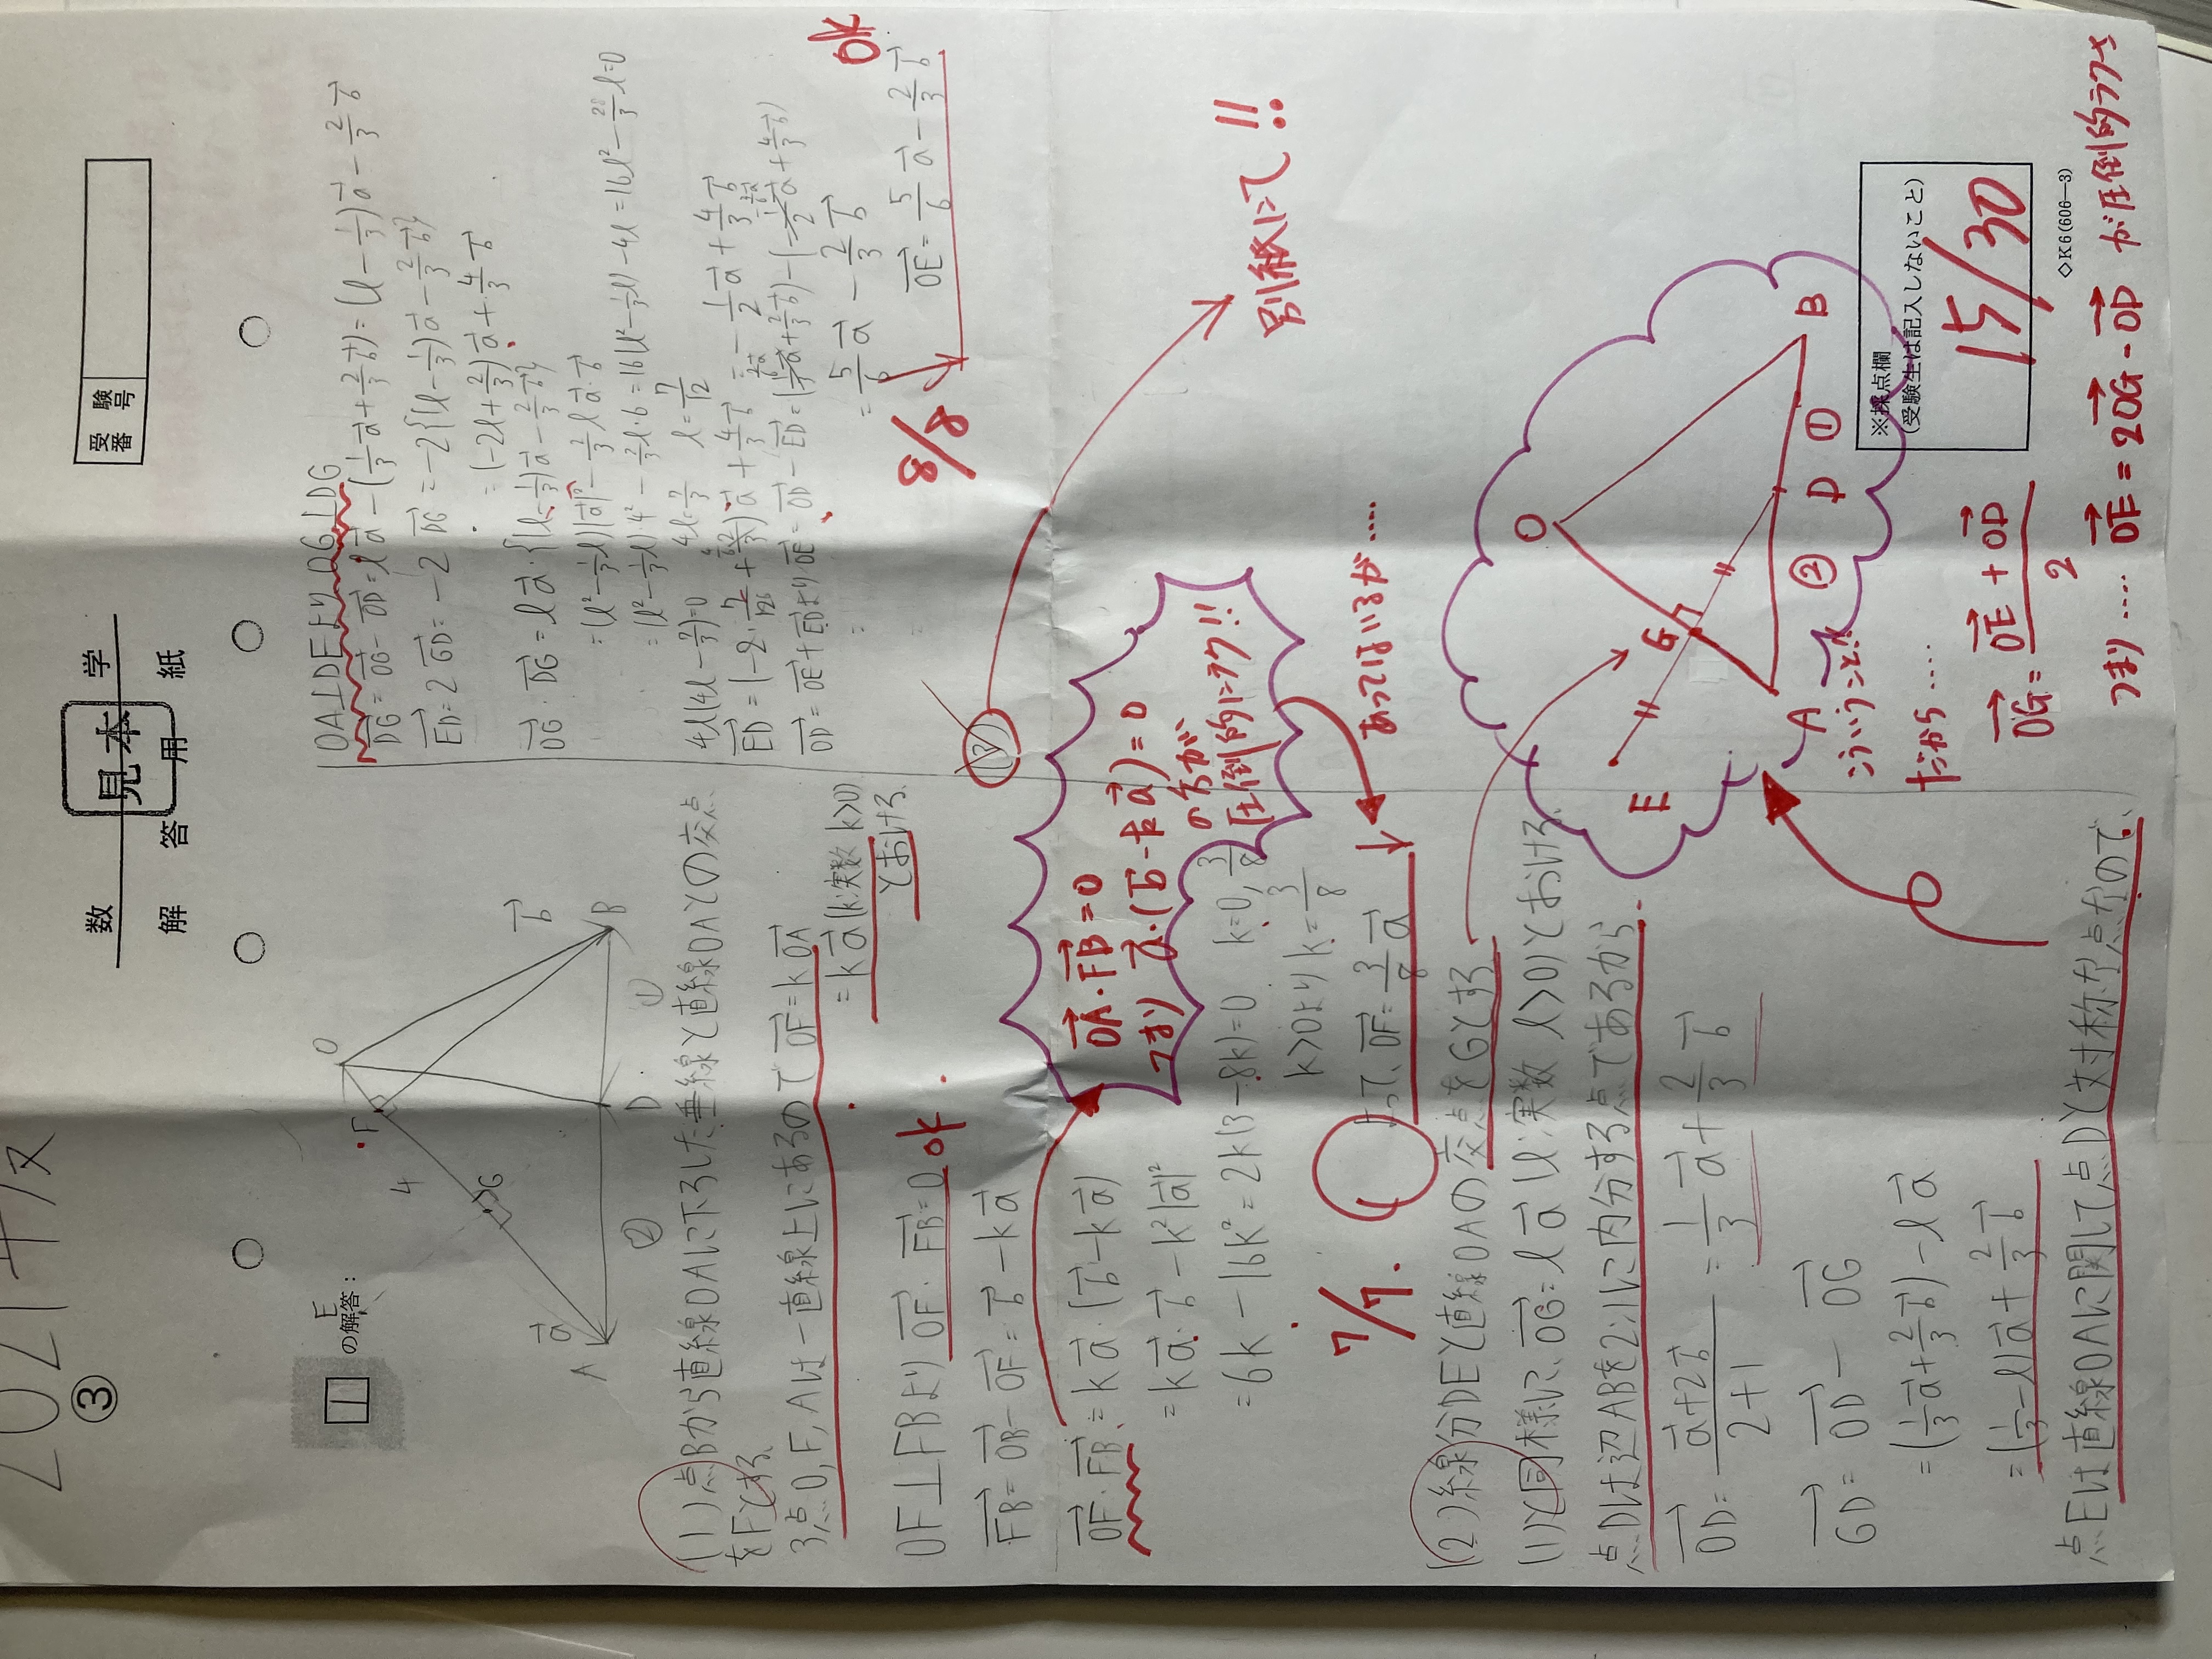 2021年
③
数 学
見本
解 答 用 紙
受験番号
1 Eの解答:
O
F
4
G
a→
A
②
D
①
B
b→
(1)点Bから直線OAに下ろした垂線と直線OAとの交点
をFとする
3点O,F,Aは一直線上にあるので OF→=kOA→
=ka→(k:実数 k>0)
とおける
OF⊥FBより OF→・FB→=0 ok
FB→=OB→-OF→=b→-ka→
OF→・FB→=ka→・(b→-ka→)
=ka→・b→-k²|a→|²
=6k-16k²=2k(3-8k)=0 k=0,3/8
k>0より k=3/8
よって、OF→=3/8a→
7/7
OA→・FB→=0
つまり a→・(b→-ka→)=0
の方が
圧倒的にラク!!
あってはいるが….
(2)線分DEと直線OAの交点をGとする
(1)と同様に、OG→=la→(l:実数 l>0)とおける
点Dは辺ABを2:1に内分する点であるから
OD→=(a→+2b→)/(2+1)=1/3a→+2/3b→
GD→=OD→-OG→
=(1/3a→+2/3b→)-la→
=(1/3-l)a→+2/3b→
点Eは直線OAに関して点Dと対称な点なので、
OA⊥DEより OG⊥DG
DG→=OG→-OD→=la→-(1/3a→+2/3b→)=(l-1/3)a→-2/3b→
ED→=2GD→=-2DG→=-2{(l-1/3)a→-2/3b→}
=(-2l+2/3)a→+4/3b→
OG→・DG→=la→・{(l-1/3)a→-2/3b→}
=(l²-1/3l)|a→|²-2/3la→・b→
=(l²-1/3l)・4²-2/3l・6=16(l²-1/3l)-4l=16l²-28/3l=0
4l(4l-7/3)=0 4l=7/3 l=7/12
ED→=(-2・7/12+2/3)a→+4/3b→=-1/2a→+4/3b→
OD→=OE→+ED→より OE→=OD→-ED→=(1/3a→+2/3b→)-(-1/2a→+4/3b→)
=5/6a→-2/3b→
OE→=5/6a→-2/3b→
ok
8/8
(3)
別紙にて!!
O
G
E
A
②
D
①
B
こういうこと!!
だから…..
OG→=(OE→+OD→)/2
つまり…. OE→=2OG→-OD→ が圧倒的ラク
※採点欄
(受験生は記入しないこと)
15/30
◇K6(606―3)